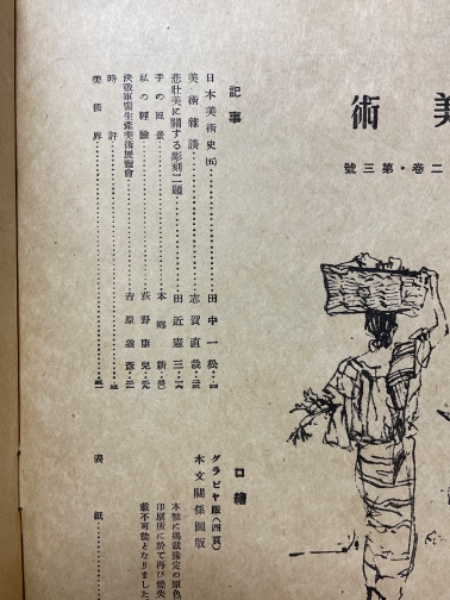 美術
二卷・第三號
記事
日本美術史(五)……田中一松…
美術雜談……志賀直哉…
悲壯美に關する彫刻二題……田近憲三…
手の風景……本郷新…
私の經驗……荻野康兒…
決戰軍需生產美術展覽會……吉原義彥…
時評……
美術界……
口繪
グラビヤ版(四頁)
本文關係圖版
本號に揭載豫定の原色
印刷所に於て再び燒失
載不可能となりました
表紙……